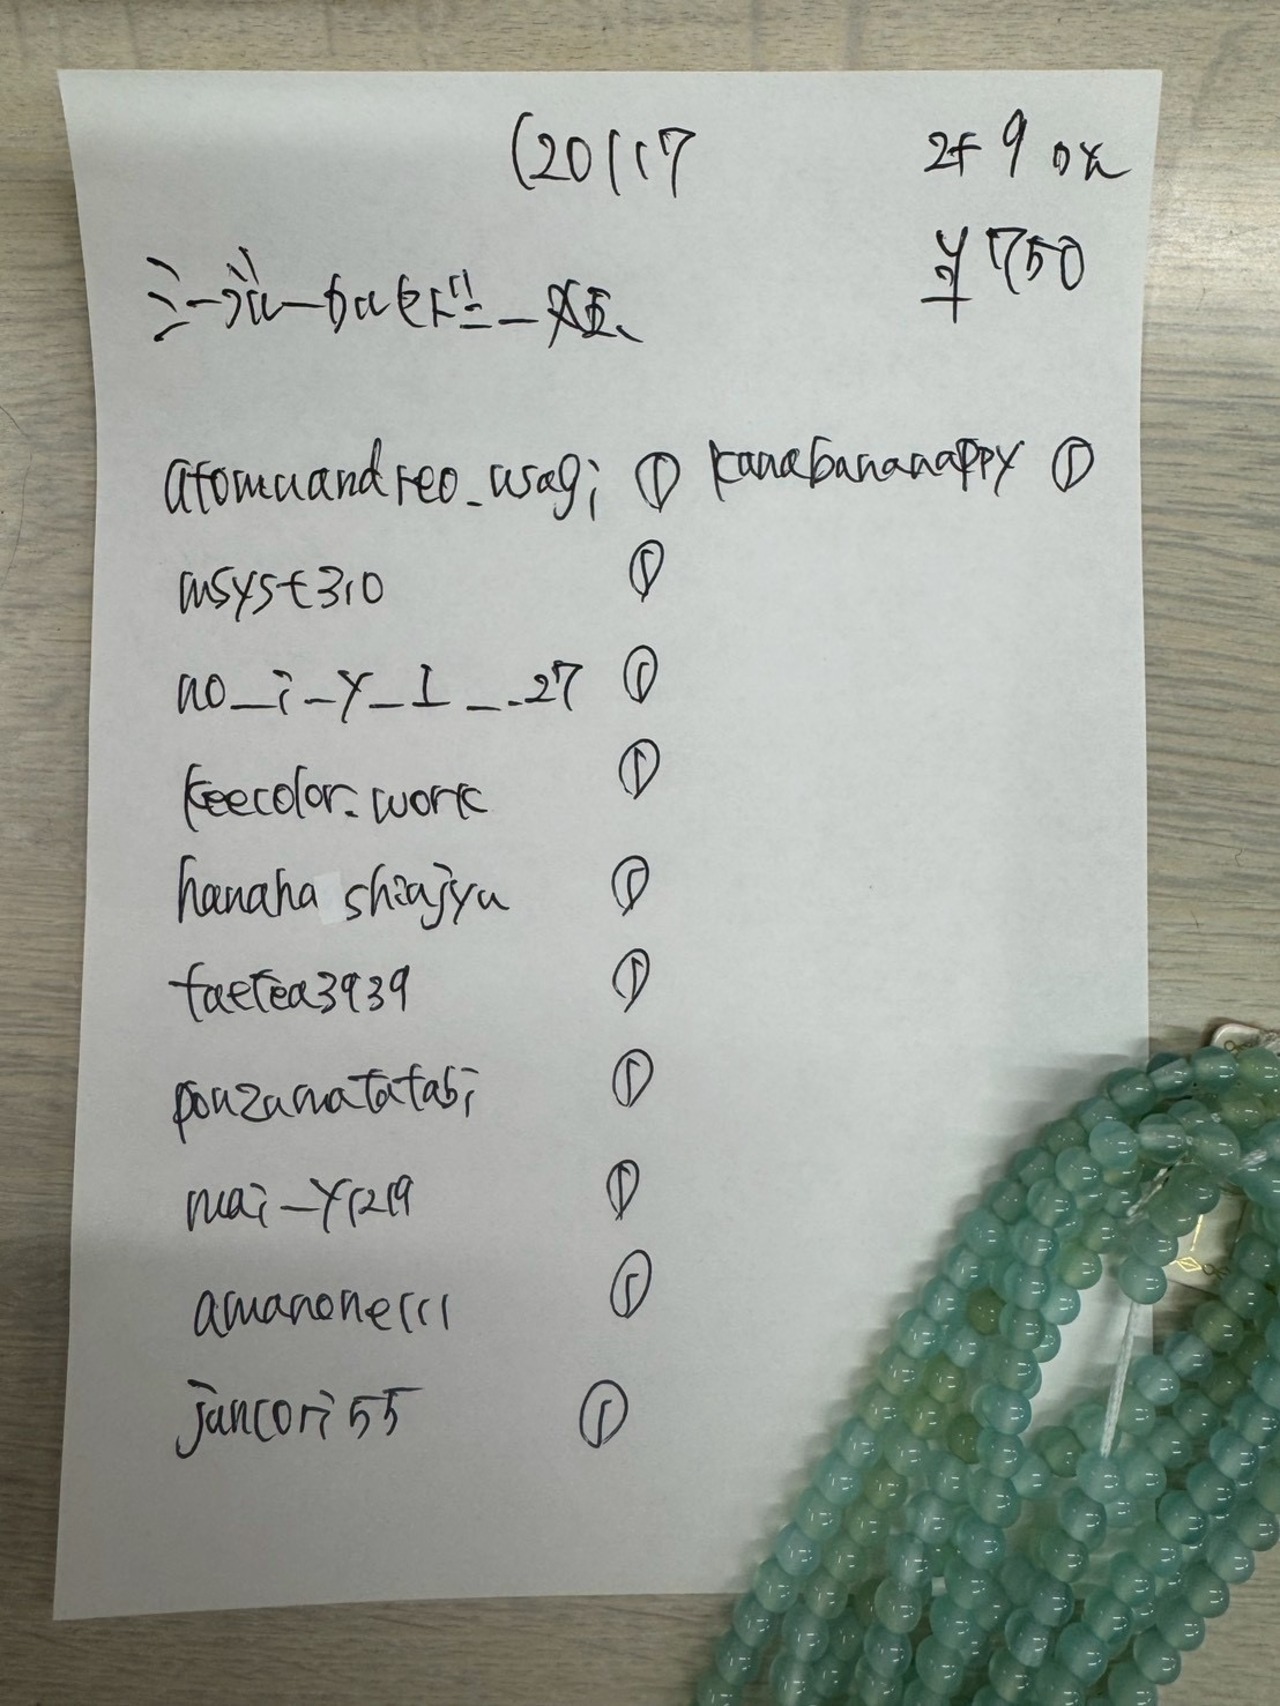 (20117
¥750
atomuandreo_usagi ① kanabananappy ①
msyst310 ①
no_i_y_1__.27 ①
keecolor.work ①
hanaha shinjyu ①
taetea3939 ①
ponzumatatabi ①
mai_y1219 ①
amanone111 ①
jancori55 ①